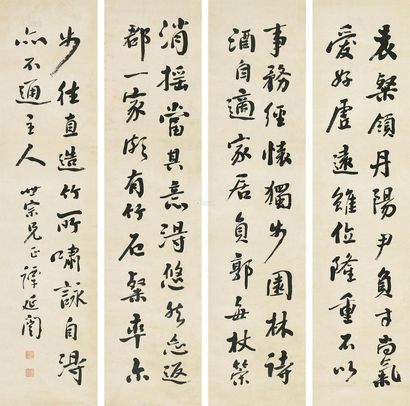 袁粲領丹陽尹負才尚氣
愛好虛遠雖位隆重不以
事務經懷獨步園林詩
酒自適家居負郭每杖策
消搖當其意得悠然忘返
郡一家頗有竹石粲率尔
步往直造竹所嘯詠自得
亦不通主人 世宗兄正 譚延闓